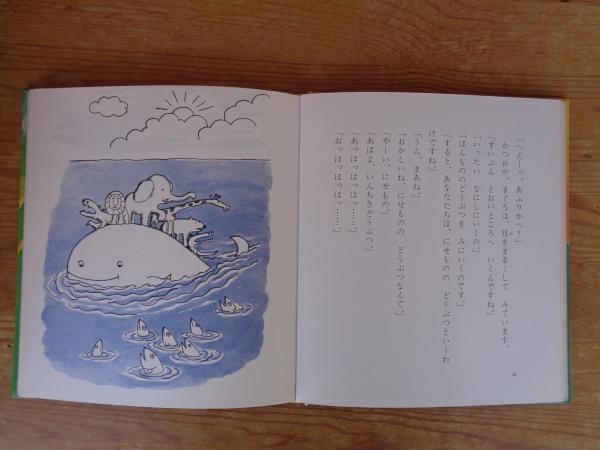 「へえーっ、あふりかへ！」
かつおや、まぐろは、目をまるくして　みています。
「ずいぶん　とおいところへ　いくんですね。」
「いったい　なにしにいくの。」
「ほんもののどうぶつを　みにいくのです。」
「すると、あなたたちは、にせものの　どうぶつというわ
けですね。」
「うん、まあね。」
「おかしいね、にせものの　どうぶつなんて。」
「やーい、にせもの。」
「あばよ、いんちきどうぶつ。」
「あっはっはっはっ……。」
「おっほっほっほっ……。」